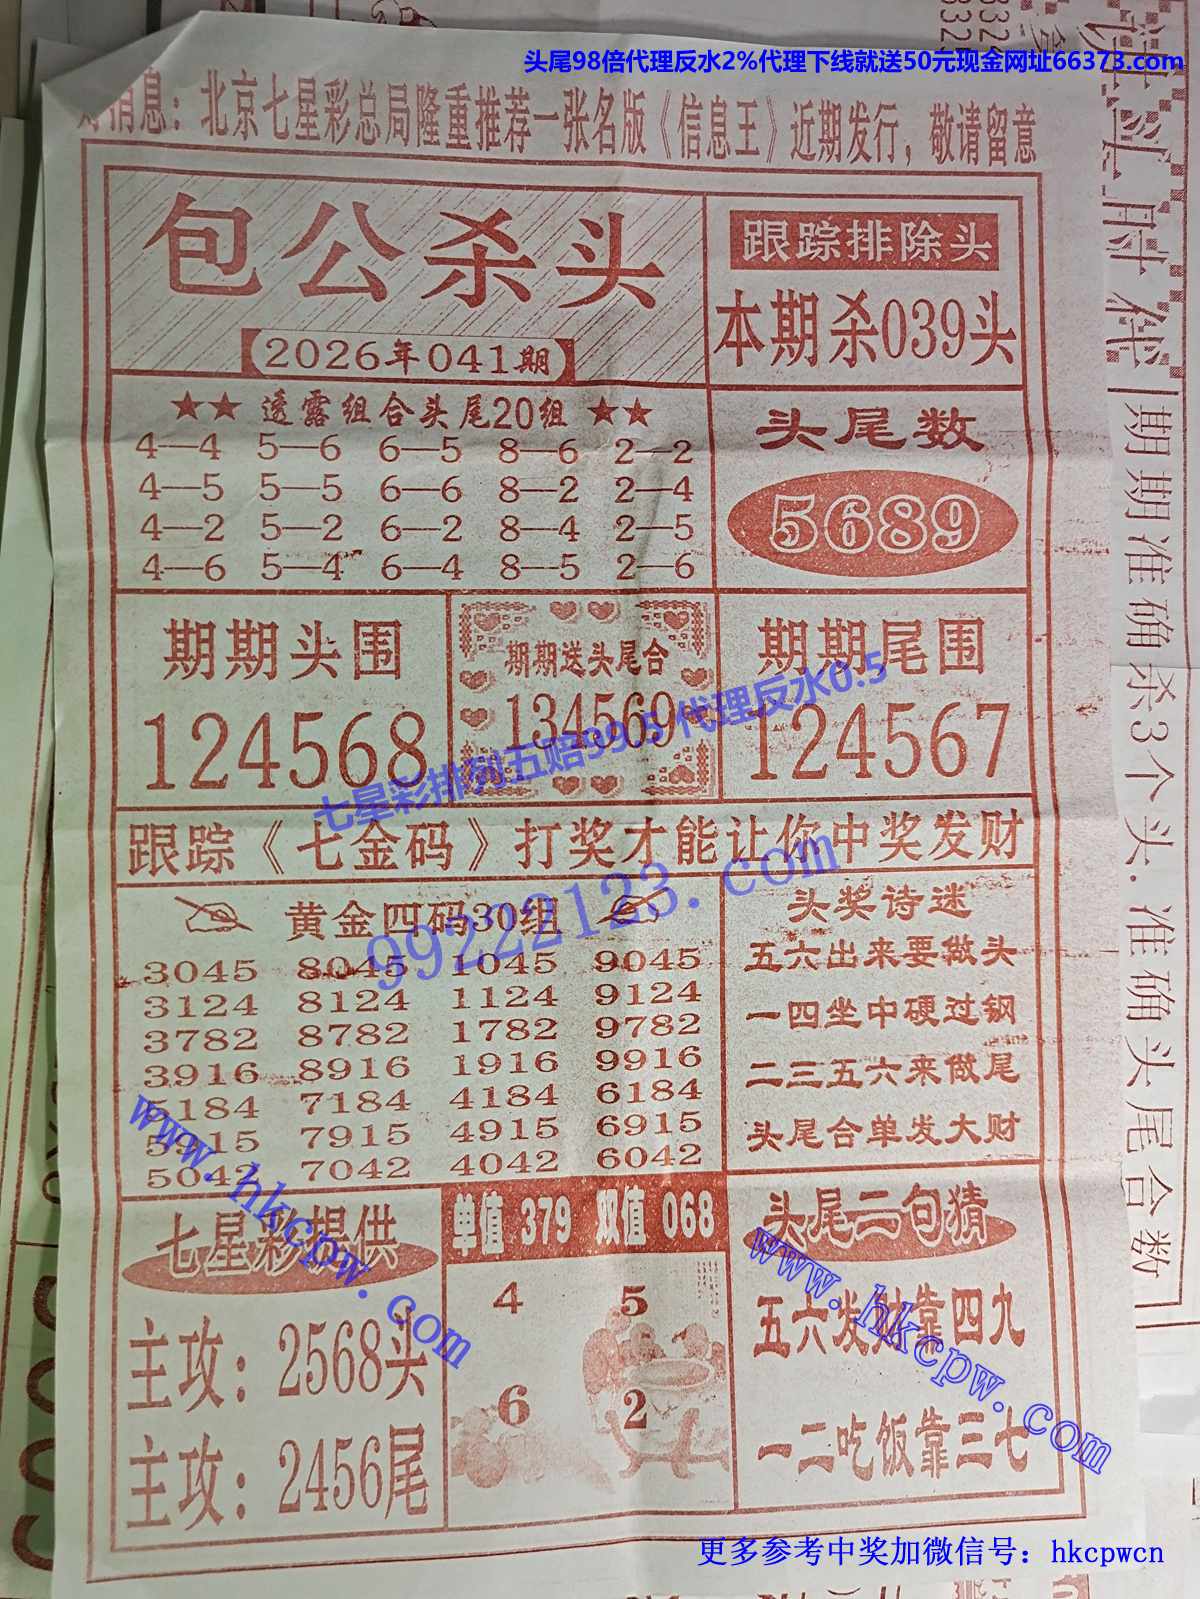 头尾98倍代理反水2%代理下线就送50元现金网址66373.com
消息：北京七星彩总局隆重推荐一张名版《信息王》近期发行，敬请留意
包公杀头
2026年041期
跟踪排除头
本期杀039头
★★ 透露组合头尾20组 ★★
4—4 5—6 6—5 8—6 2—2
4—5 5—5 6—6 8—2 2—4
4—2 5—2 6—2 8—4 2—5
4—6 5—4 6—4 8—5 2—6
头尾数
5689
期期头围
124568
期期送头尾合
134569
期期尾围
124567
七星彩排列五赔99.5 代理反水0.5
跟踪《七金码》打奖才能让你中奖发财
99222123.com
黄金四码30组
3045 8045 1045 9045
3124 8124 1124 9124
3782 8782 1782 9782
3916 8916 1916 9916
5184 7184 4184 6184
5915 7915 4915 6915
5042 7042 4042 6042
头奖诗迷
五六出来要做头
一四坐中硬过钢
二三五六来做尾
头尾合单发大财
七星彩提供
主攻：2568头
主攻：2456尾
www.hkcpw.com
单值 379 双值 068
4 5
6 2
头尾二句猜
五六发财靠四九
一二吃饭靠三七
www.hkcpw.com
期期准确杀3个头.准确头尾合数
更多参考中奖加微信号：hkcpwcn